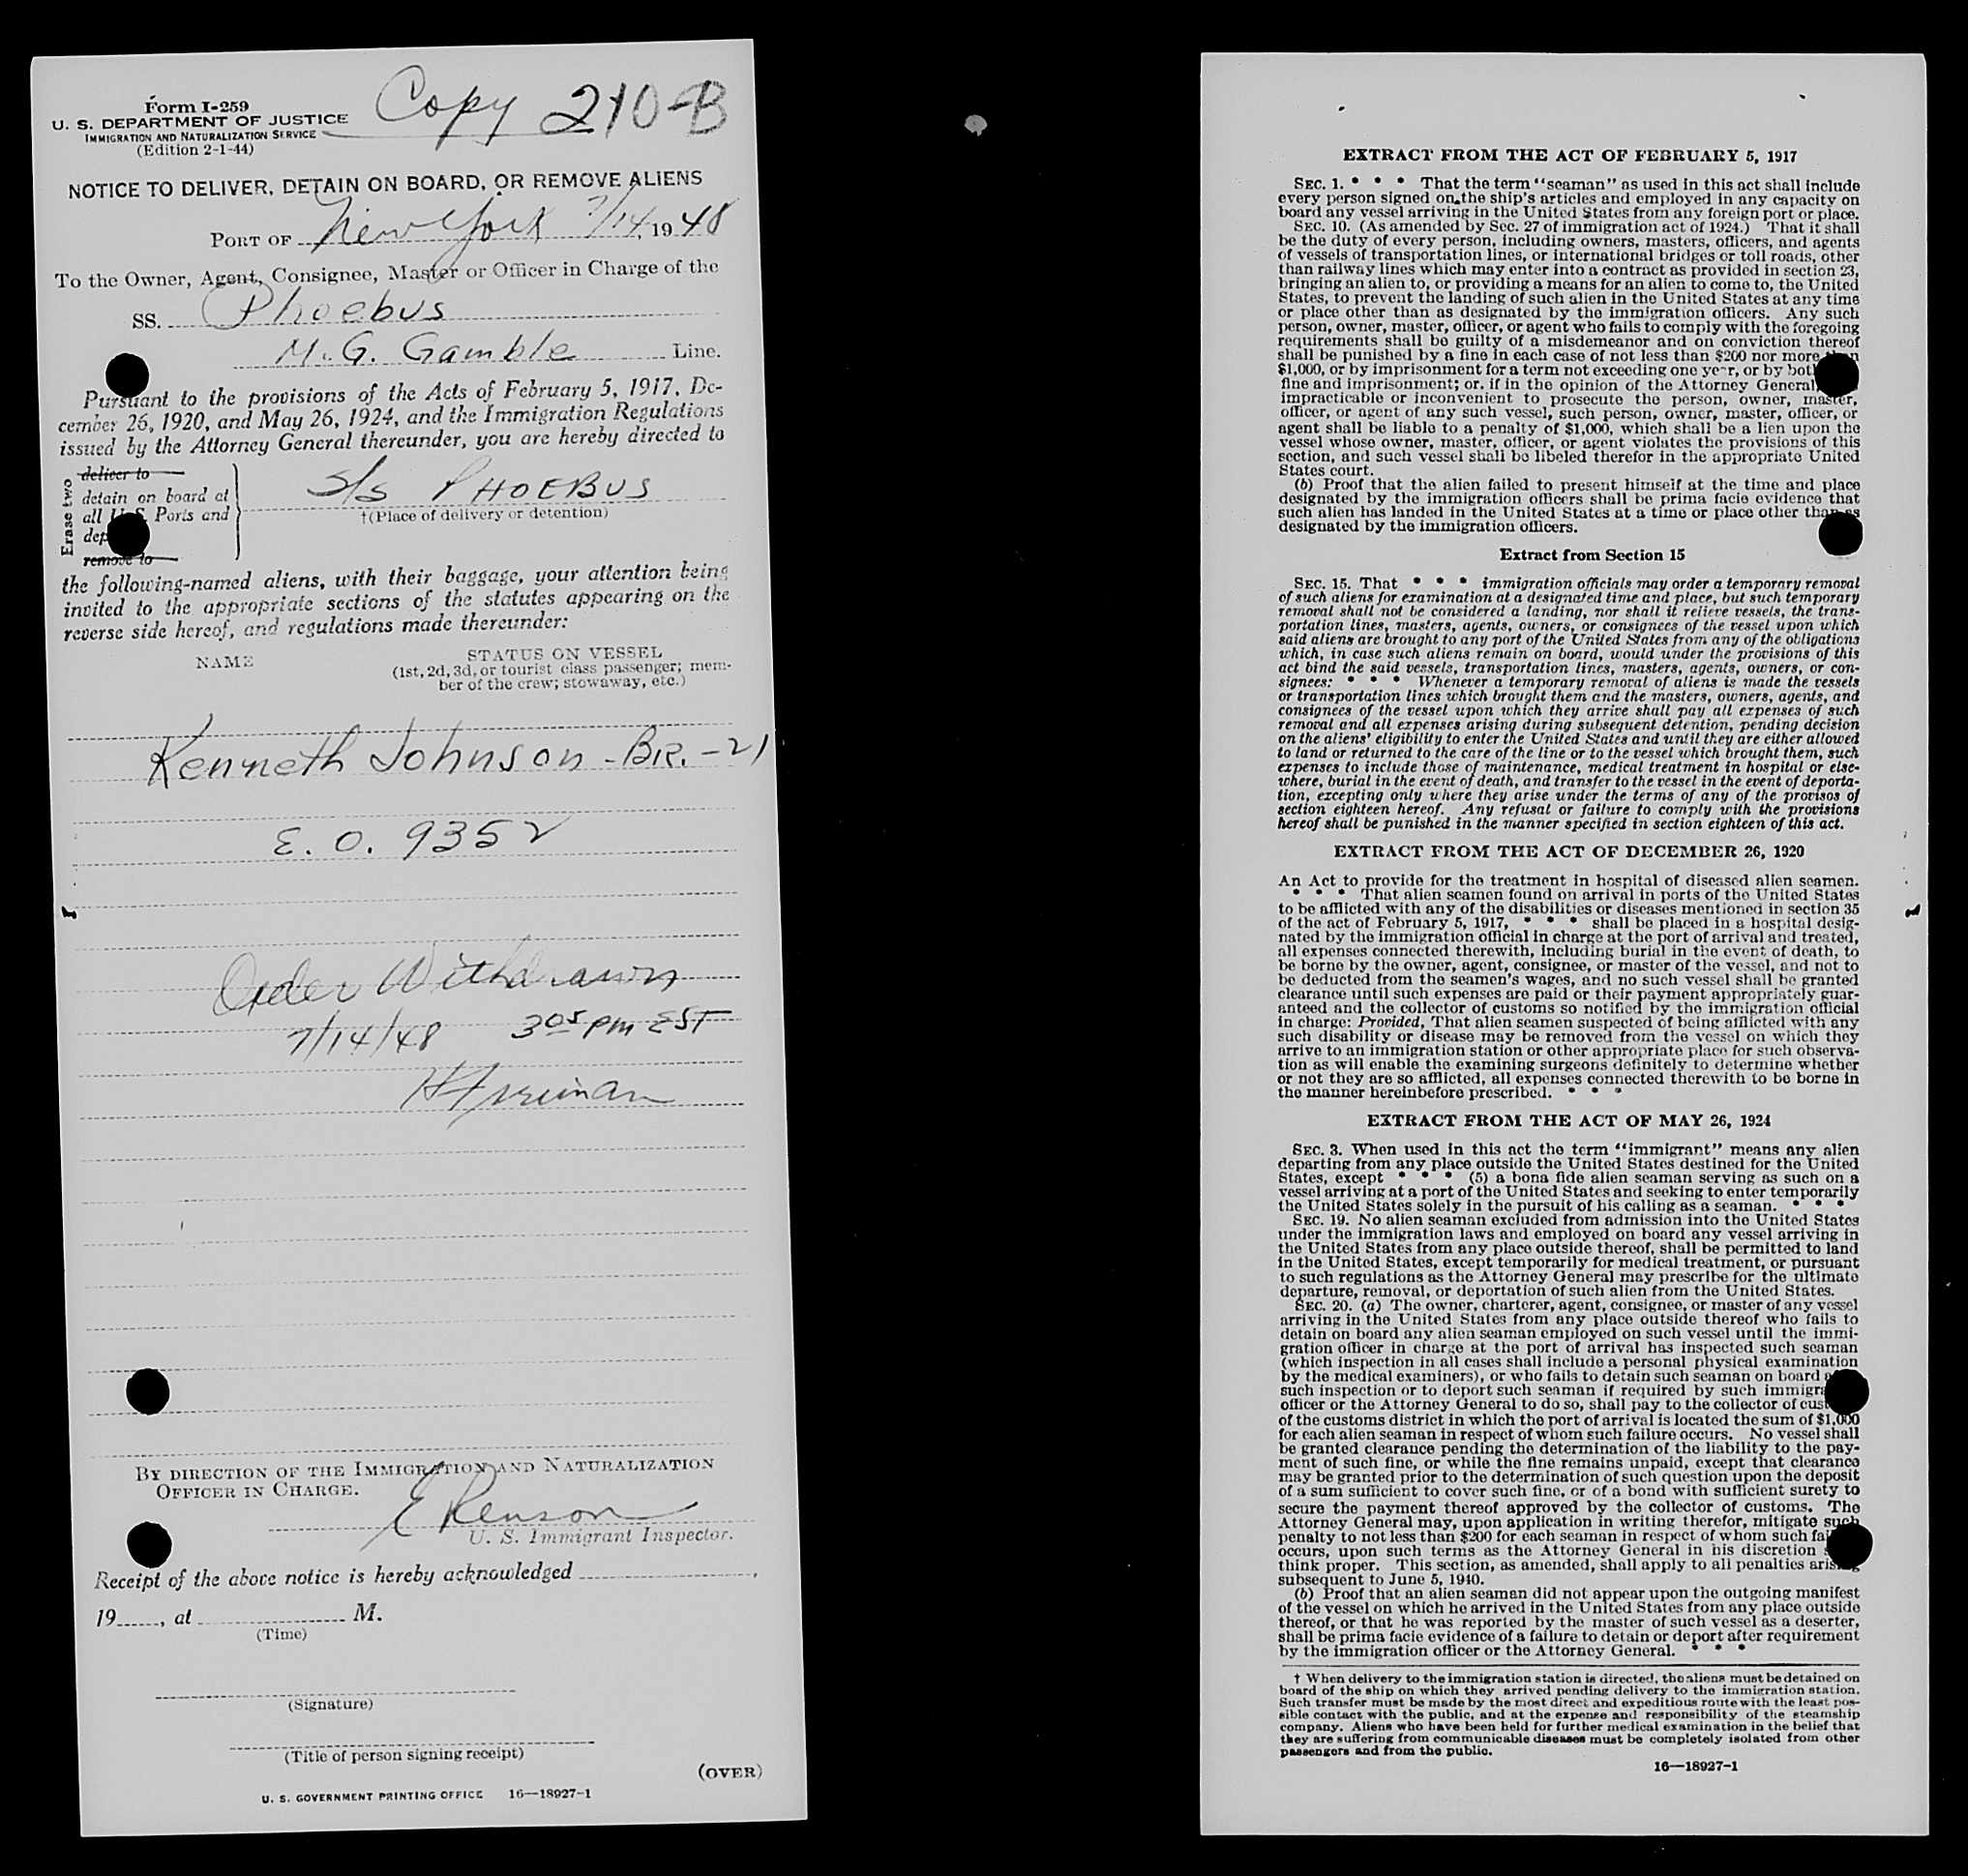 Form I-259
U. S. DEPARTMENT OF JUSTICE
IMMIGRATION AND NATURALIZATION SERVICE
(Edition 2-1-44)
Copy 210-B
NOTICE TO DELIVER, DETAIN ON BOARD, OR REMOVE ALIENS
PORT OF New York 7/14, 1948
To the Owner, Agent, Consignee, Master or Officer in Charge of the
SS. Phoebus
M. G. Gamble Line.
Pursuant to the provisions of the Acts of February 5, 1917, De-
cember 26, 1920, and May 26, 1924, and the Immigration Regulations
issued by the Attorney General thereunder, you are hereby directed to
Erase two
deliver to
detain on board at
all U.S. Ports and
dep
remove to
S/S PHOEBUS
†(Place of delivery or detention)
the following-named aliens, with their baggage, your attention being
invited to the appropriate sections of the statutes appearing on the
reverse side hereof, and regulations made thereunder:
NAME
STATUS ON VESSEL
(1st, 2d, 3d, or tourist class passenger; mem-
ber of the crew; stowaway, etc.)
Kenneth Johnson - BR. - 21
E. O. 9352
Order Withdrawn
7/14/48 305 PM EST
H Freiman
BY DIRECTION OF THE IMMIGRATION AND NATURALIZATION
OFFICER IN CHARGE.
E Renson
U. S. Immigrant Inspector.
Receipt of the above notice is hereby acknowledged ,
19 , at M.
(Time)
(Signature)
(Title of person signing receipt)
(OVER)
U. S. GOVERNMENT PRINTING OFFICE 16—18927-1
EXTRACT FROM THE ACT OF FEBRUARY 5, 1917
SEC. 1. * * * That the term "seaman" as used in this act shall include
every person signed on the ship's articles and employed in any capacity on
board any vessel arriving in the United States from any foreign port or place.
SEC. 10. (As amended by Sec. 27 of immigration act of 1924.) That it shall
be the duty of every person, including owners, masters, officers, and agents
of vessels of transportation lines, or international bridges or toll roads, other
than railway lines which may enter into a contract as provided in section 23,
bringing an alien to, or providing a means for an alien to come to, the United
States, to prevent the landing of such alien in the United States at any time
or place other than as designated by the immigration officers. Any such
person, owner, master, officer, or agent who fails to comply with the foregoing
requirements shall be guilty of a misdemeanor and on conviction thereof
shall be punished by a fine in each case of not less than $200 nor more than
$1,000, or by imprisonment for a term not exceeding one year, or by both
fine and imprisonment; or, if in the opinion of the Attorney General,
impracticable or inconvenient to prosecute the person, owner, master,
officer, or agent of any such vessel, such person, owner, master, officer, or
agent shall be liable to a penalty of $1,000, which shall be a lien upon the
vessel whose owner, master, officer, or agent violates the provisions of this
section, and such vessel shall be libeled therefor in the appropriate United
States court.
(b) Proof that the alien failed to present himself at the time and place
designated by the immigration officers shall be prima facie evidence that
such alien has landed in the United States at a time or place other than as
designated by the immigration officers.
Extract from Section 15
SEC. 15. That * * * immigration officials may order a temporary removal
of such aliens for examination at a designated time and place, but such temporary
removal shall not be considered a landing, nor shall it relieve vessels, the trans-
portation lines, masters, agents, owners, or consignees of the vessel upon which
said aliens are brought to any port of the United States from any of the obligations
which, in case such aliens remain on board, would under the provisions of this
act bind the said vessels, transportation lines, masters, agents, owners, or con-
signees: * * * Whenever a temporary removal of aliens is made the vessels
or transportation lines which brought them and the masters, owners, agents, and
consignees of the vessel upon which they arrive shall pay all expenses of such
removal and all expenses arising during subsequent detention, pending decision
on the aliens' eligibility to enter the United States and until they are either allowed
to land or returned to the care of the line or to the vessel which brought them, such
expenses to include those of maintenance, medical treatment in hospital or else-
where, burial in the event of death, and transfer to the vessel in the event of deporta-
tion, excepting only where they arise under the terms of any of the provisos of
section eighteen hereof. Any refusal or failure to comply with the provisions
hereof shall be punished in the manner specified in section eighteen of this act.
EXTRACT FROM THE ACT OF DECEMBER 26, 1920
An Act to provide for the treatment in hospital of diseased alien seamen.
* * * That alien seamen found on arrival in ports of the United States
to be afflicted with any of the disabilities or diseases mentioned in section 35
of the act of February 5, 1917, * * * shall be placed in a hospital desig-
nated by the immigration official in charge at the port of arrival and treated,
all expenses connected therewith, including burial in the event of death, to
be borne by the owner, agent, consignee, or master of the vessel, and not to
be deducted from the seamen's wages, and no such vessel shall be granted
clearance until such expenses are paid or their payment appropriately guar-
anteed and the collector of customs so notified by the immigration official
in charge: Provided, That alien seamen suspected of being afflicted with any
such disability or disease may be removed from the vessel on which they
arrive to an immigration station or other appropriate place for such observa-
tion as will enable the examining surgeons definitely to determine whether
or not they are so afflicted, all expenses connected therewith to be borne in
the manner hereinbefore prescribed. * * *
EXTRACT FROM THE ACT OF MAY 26, 1924
SEC. 3. When used in this act the term "immigrant" means any alien
departing from any place outside the United States destined for the United
States, except * * * (5) a bona fide alien seaman serving as such on a
vessel arriving at a port of the United States and seeking to enter temporarily
the United States solely in the pursuit of his calling as a seaman. * * *
SEC. 19. No alien seaman excluded from admission into the United States
under the immigration laws and employed on board any vessel arriving in
the United States from any place outside thereof, shall be permitted to land
in the United States, except temporarily for medical treatment, or pursuant
to such regulations as the Attorney General may prescribe for the ultimate
departure, removal, or deportation of such alien from the United States.
SEC. 20. (a) The owner, charterer, agent, consignee, or master of any vessel
arriving in the United States from any place outside thereof who fails to
detain on board any alien seaman employed on such vessel until the immi-
gration officer in charge at the port of arrival has inspected such seaman
(which inspection in all cases shall include a personal physical examination
by the medical examiners), or who fails to detain such seaman on board
such inspection or to deport such seaman if required by such immigra
officer or the Attorney General to do so, shall pay to the collector of cust
of the customs district in which the port of arrival is located the sum of $1,000
for each alien seaman in respect of whom such failure occurs. No vessel shall
be granted clearance pending the determination of the liability to the pay-
ment of such fine, or while the fine remains unpaid, except that clearance
may be granted prior to the determination of such question upon the deposit
of a sum sufficient to cover such fine, or of a bond with sufficient surety to
secure the payment thereof approved by the collector of customs. The
Attorney General may, upon application in writing therefor, mitigate such
penalty to not less than $200 for each seaman in respect of whom such fai
occurs, upon such terms as the Attorney General in his discretion
think proper. This section, as amended, shall apply to all penalties arising
subsequent to June 5, 1940.
(b) Proof that an alien seaman did not appear upon the outgoing manifest
of the vessel on which he arrived in the United States from any place outside
thereof, or that he was reported by the master of such vessel as a deserter,
shall be prima facie evidence of a failure to detain or deport after requirement
by the immigration officer or the Attorney General. * * *
† When delivery to the immigration station is directed, the aliens must be detained on
board of the ship on which they arrived pending delivery to the immigration station.
Such transfer must be made by the most direct and expeditious route with the least pos-
sible contact with the public, and at the expense and responsibility of the steamship
company. Aliens who have been held for further medical examination in the belief that
they are suffering from communicable diseases must be completely isolated from other
passengers and from the public.
16—18927-1